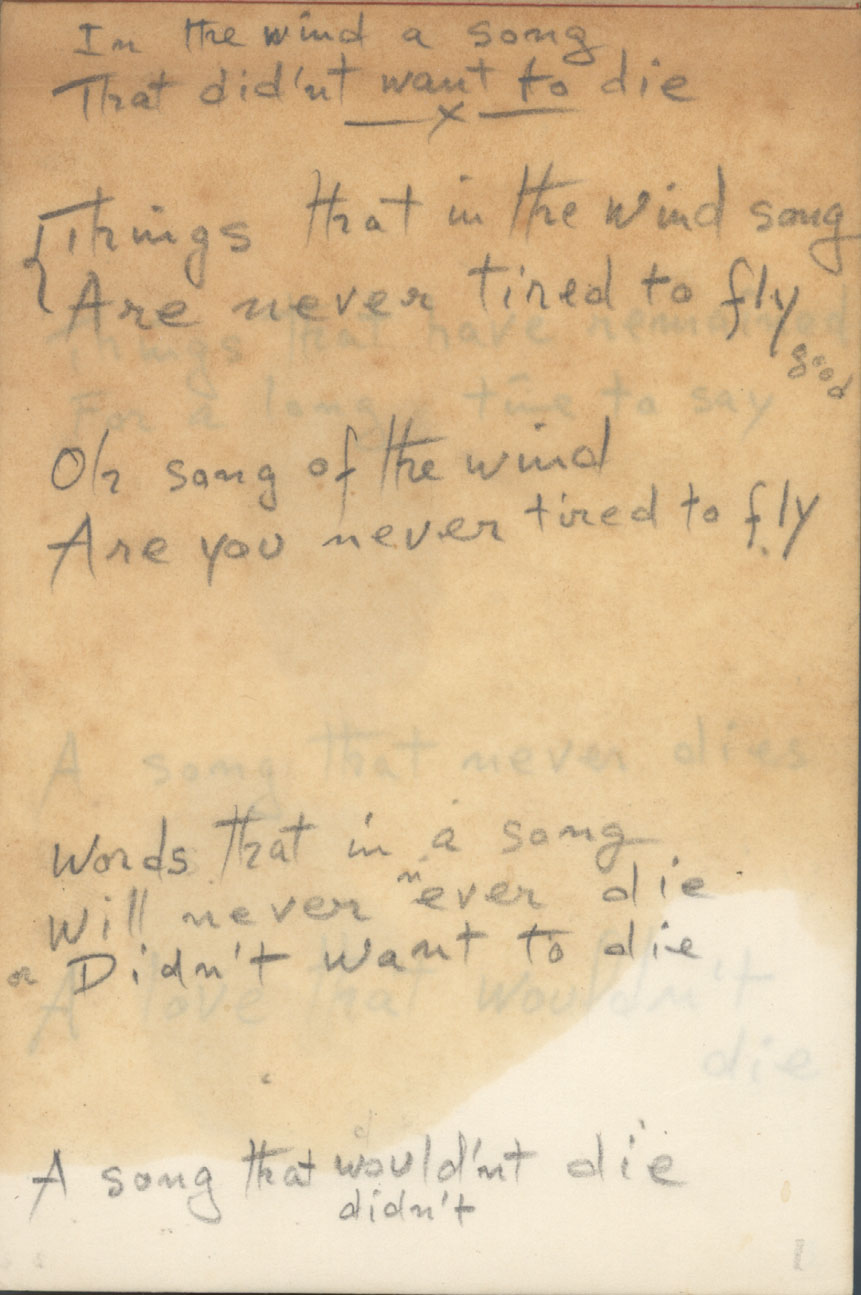 In the wind a song
That did'nt want to die
x
Things that in the wind song
Are never tired to fly
good
Things that have remained
For a long time to say
Oh song of the wind
Are you never tired to fly
A song that never dies
Words that in a song
Will never never die
or Didn't want to die
A love that wouldn't
die
A song that would'nt die
didn't